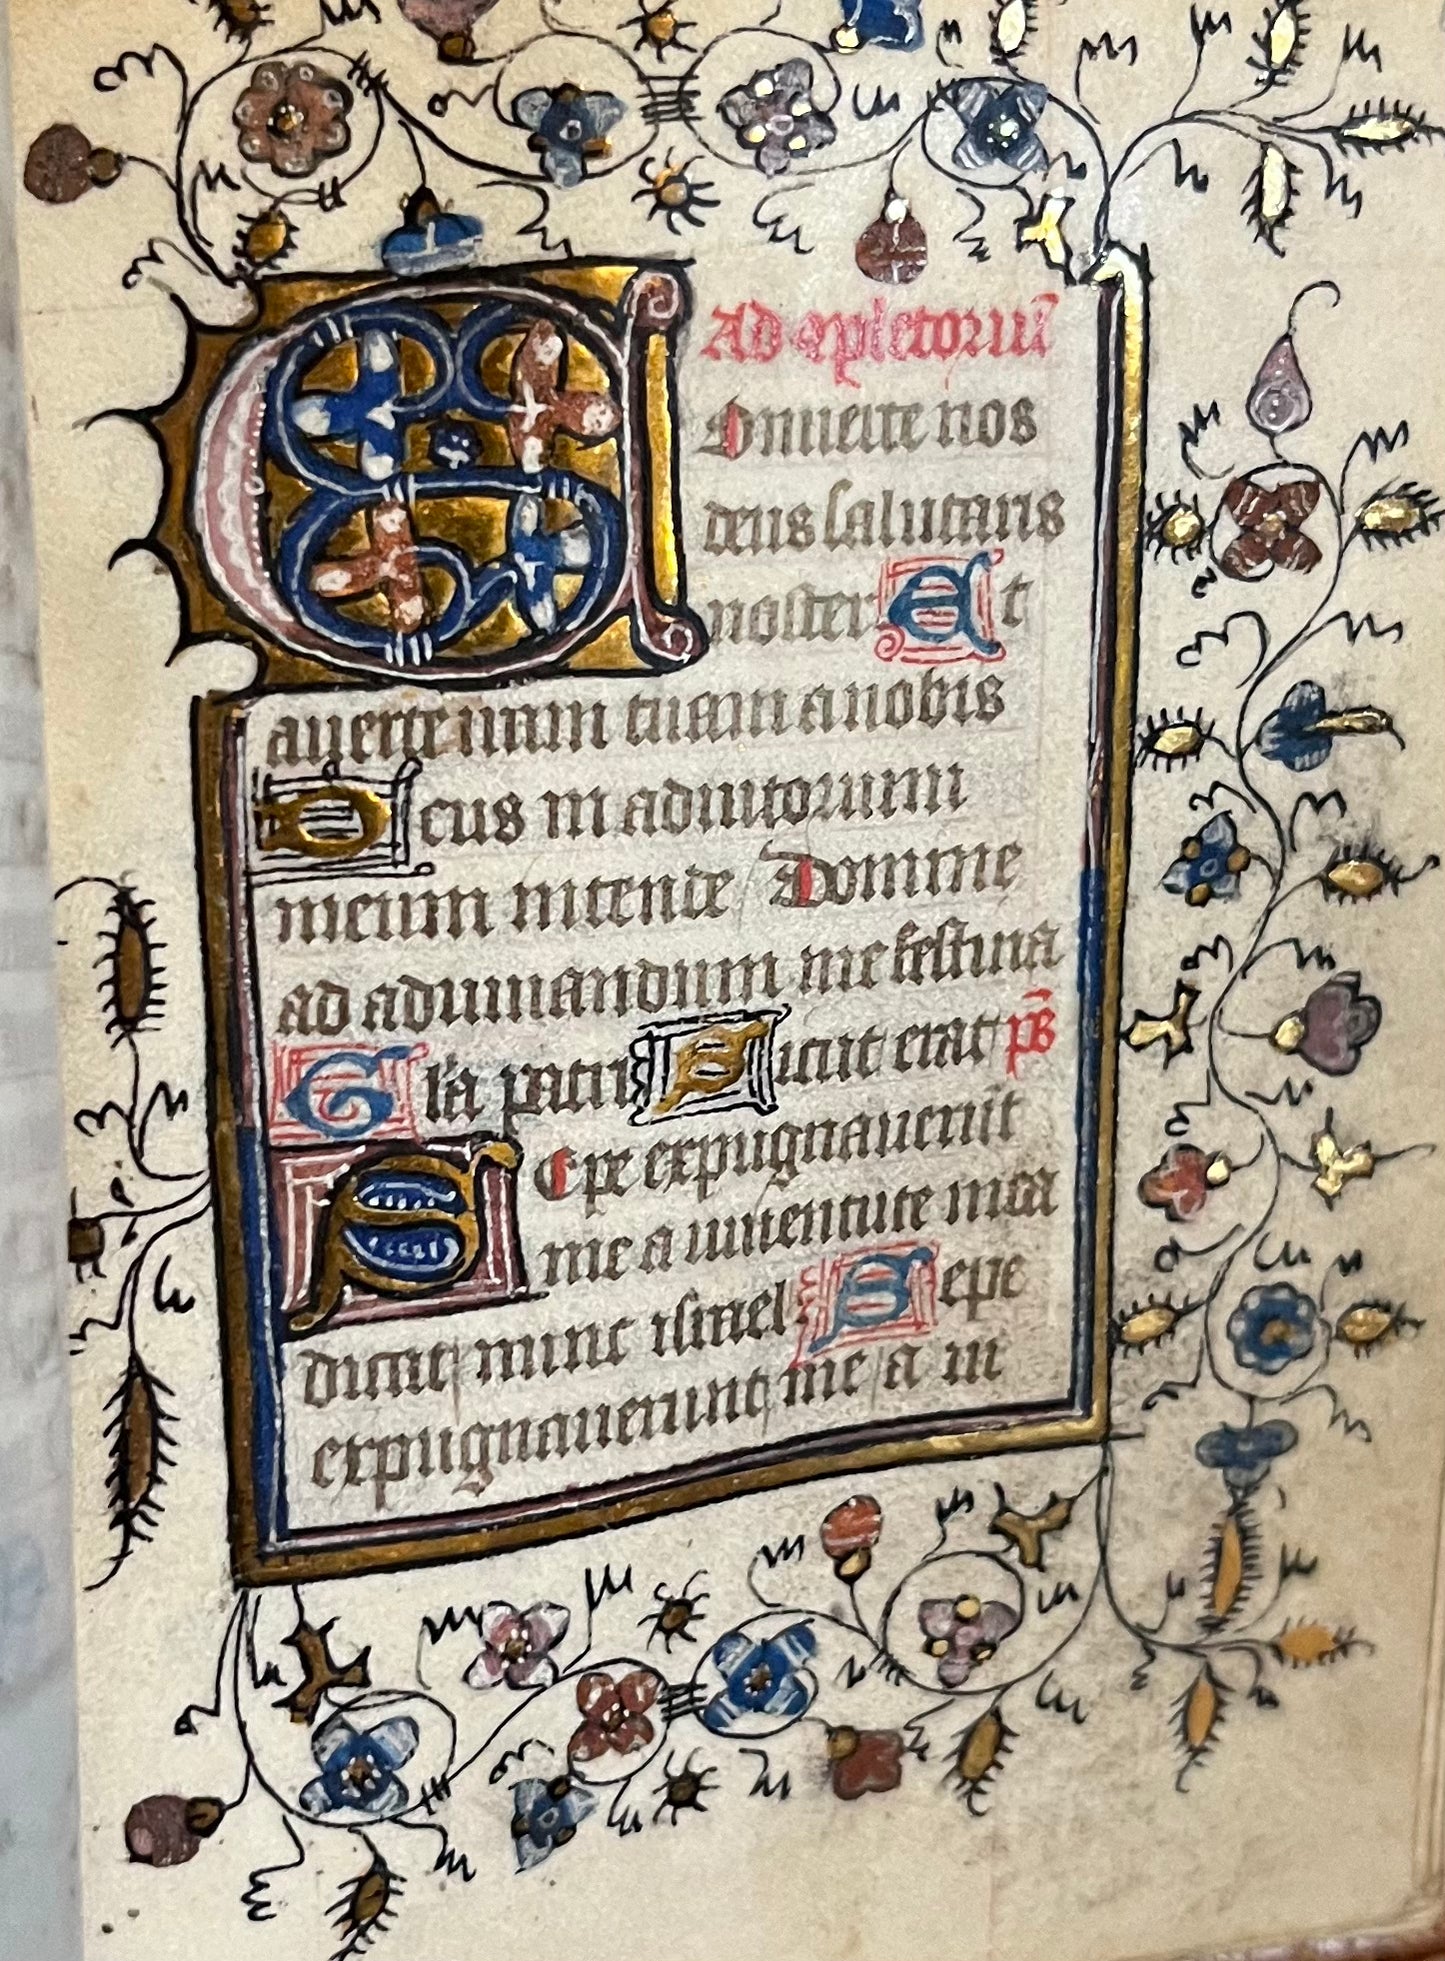 Ad ɔpletoriu̅
Conuerte nos
deus salutaris
noster Et
auerte iram tuam a nobis
Deus in adiutorium
meum intende Domine
ad adiuuandum me festina
Gl'a patri Sicut erat p̅s
Sepe expugnauerūt
me a iuuentute mea
dicat nunc israel Sepe
expugnauerunt me a iu